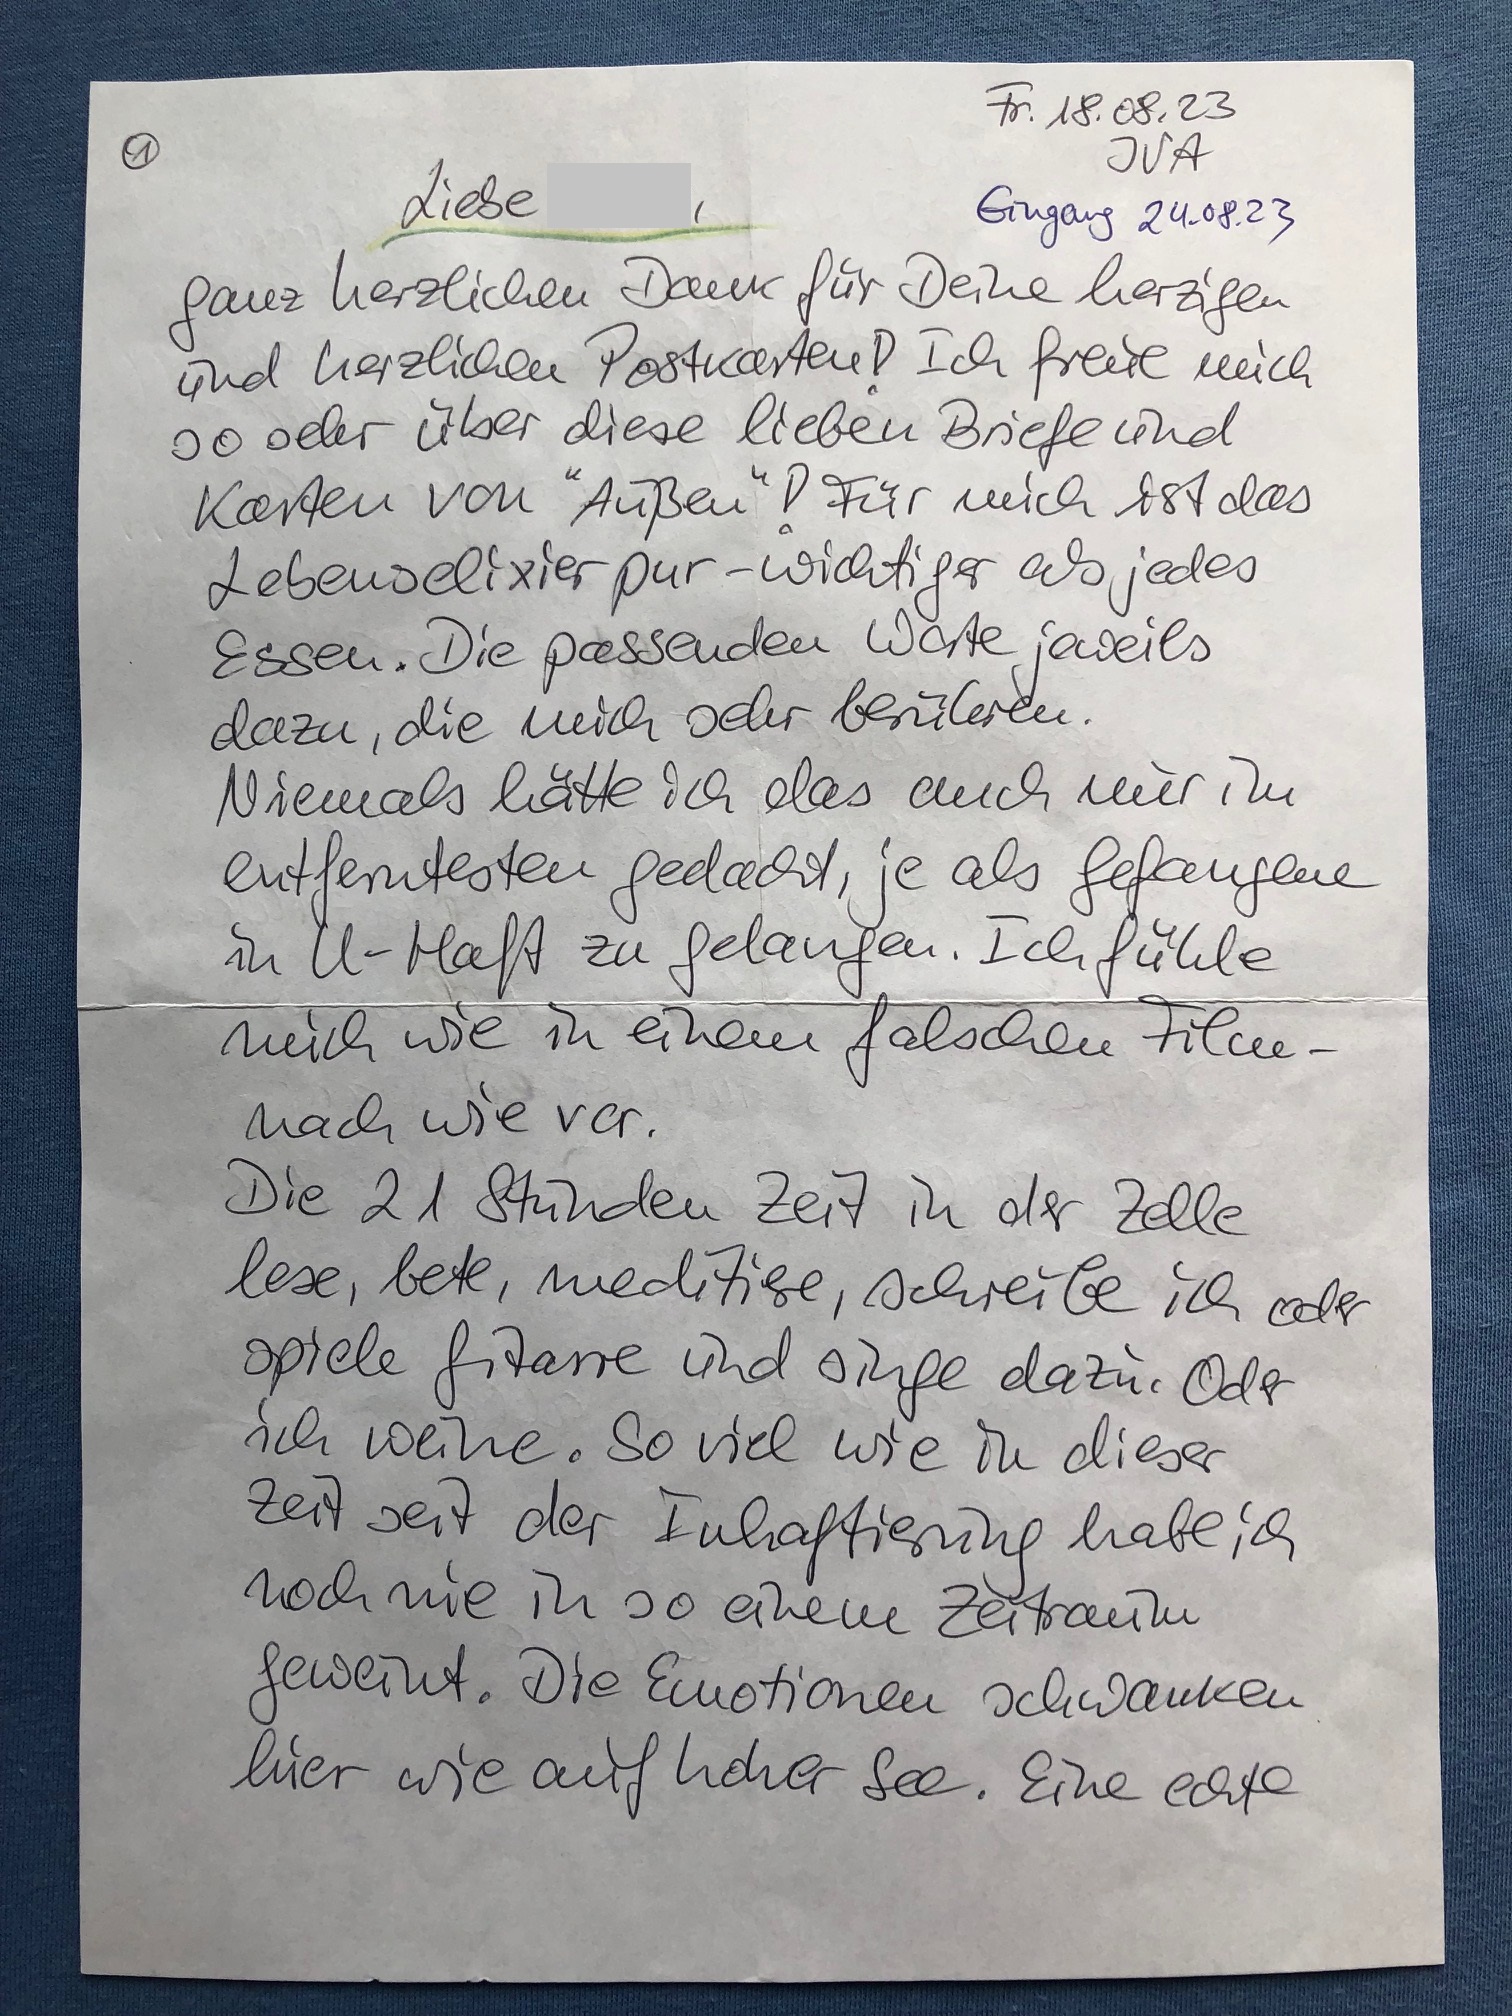 Fr. 18.08.23
① JVA
Liebe ,
Eingang 24.08.23
ganz herzlichen Dank für Deine herzigen
und herzlichen Postkarten! Ich freue mich
so sehr über diese lieben Briefe und
Karten von "Außen"! Für mich ist das
Lebenselixier pur – wichtiger als jedes
Essen. Die passenden Worte jeweils
dazu, die mich sehr berühren.
Niemals hätte ich das auch nur im
entferntesten gedacht, je als Gefangene
in U-Haft zu gelangen. Ich fühle
mich wie in einem falschen Film –
nach wie vor.
Die 21 Stunden Zeit in der Zelle
lese, bete, meditiere, schreibe ich oder
spiele Gitarre und singe dazu. Oder
ich weine. So viel wie in dieser
Zeit seit der Inhaftierung habe ich
noch nie in so einem Zeitraum
geweint. Die Emotionen schwanken
hier wie auf hoher See. Eine echte